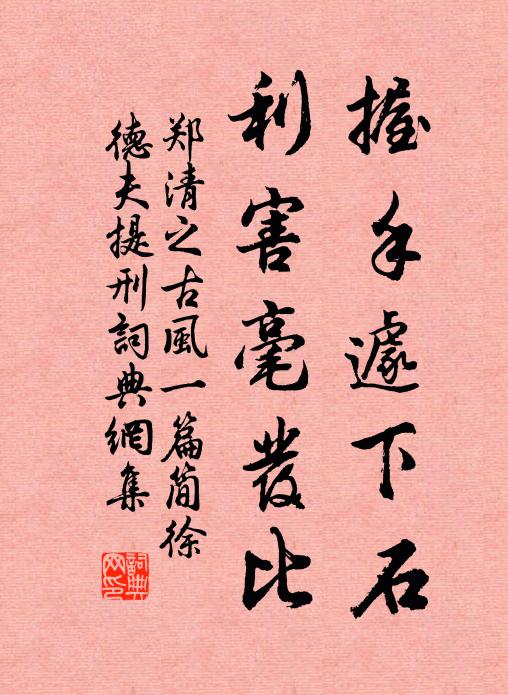 握手遽下石
利害毫發比
郑清之古風一篇简徐
德夫提刑詞典網集
詞典网印